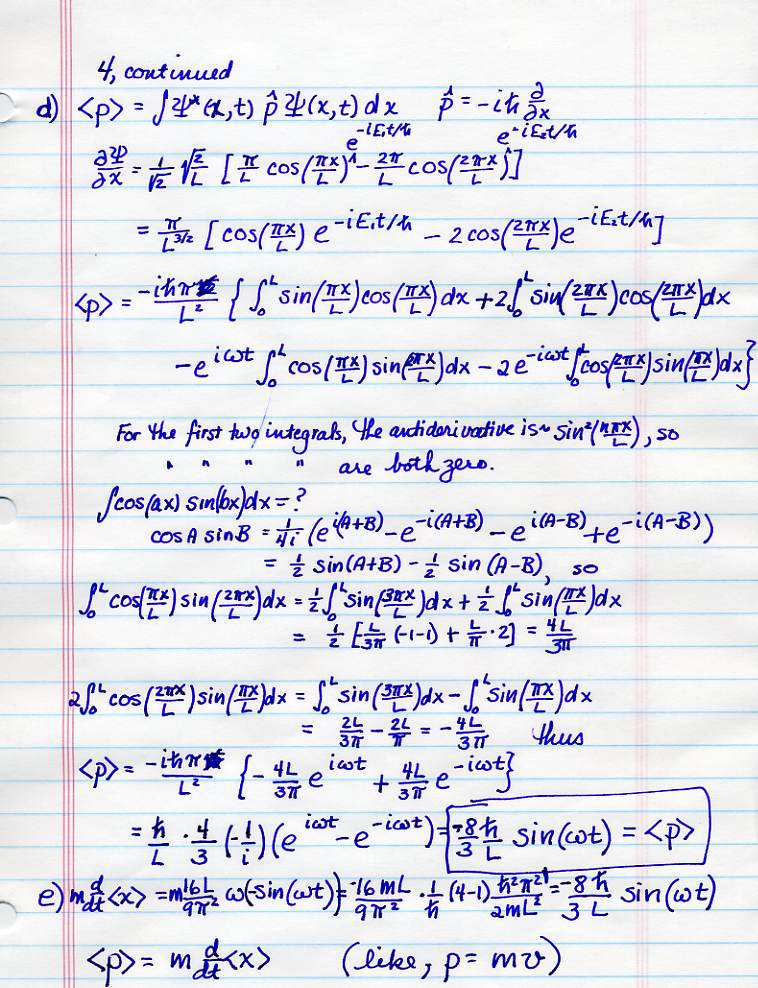 4, continued
d) <p> = ∫Ψ*(x,t) p̂ Ψ(x,t) dx    p̂ = -iħ ∂/∂x
∂Ψ/∂x = 1/√2 √(2/L) [π/L cos(πx/L)^ e^{-iE₁t/ħ} - 2π/L cos(2πx/L)^ e^{-iE₂t/ħ}]
= π/L^{3/2} [cos(πx/L) e^{-iE₁t/ħ} - 2cos(2πx/L) e^{-iE₂t/ħ}]
<p> = -iħπ/L² { ∫₀ᴸ sin(πx/L) cos(πx/L) dx + 2∫₀ᴸ sin(2πx/L) cos(2πx/L) dx
- e^{iωt} ∫₀ᴸ cos(πx/L) sin(2πx/L) dx - 2e^{-iωt} ∫₀ᴸ cos(2πx/L) sin(πx/L) dx}
For the first two integrals, the antiderivative is ~ sin²(nπx/L), so
" " " " are both zero.
∫cos(ax) sin(bx) dx = ?
cos A sin B = 1/4i (e^{i(A+B)} - e^{-i(A+B)} - e^{i(A-B)} + e^{-i(A-B)})
= ½ sin(A+B) - ½ sin(A-B), so
∫₀ᴸ cos(πx/L) sin(2πx/L) dx = ½∫₀ᴸ sin(3πx/L) dx + ½∫₀ᴸ sin(πx/L) dx
= ½ [L/3π (-1-1) + L/π · 2] = 4L/3π
2∫₀ᴸ cos(2πx/L) sin(πx/L) dx = ∫₀ᴸ sin(3πx/L) dx - ∫₀ᴸ sin(πx/L) dx
= 2L/3π - 2L/π = -4L/3π   thus
<p> = -iħπ/L² {-4L/3π e^{iωt} + 4L/3π e^{-iωt}}
= ħ/L · 4/3 (-1/i)(e^{iωt} - e^{-iωt}) = -8/3 ħ/L sin(ωt) = <p>
e) m d/dt <x> = m 16L/9π² ω(-sin(ωt)) = -16mL/9π² · 1/ħ (4-1) ħ²π²/2mL² = -8ħ/3L sin(ωt)
<p> = m d/dt <x>   (like, p = mv)